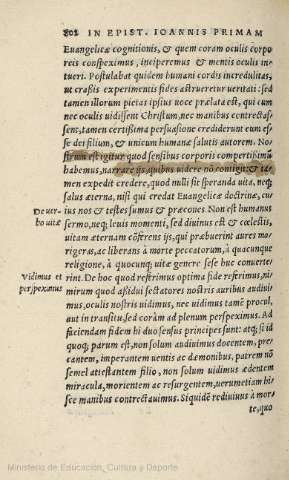 802 IN EPIST. IOANNIS PRIMAM
Euangelicæ cognitionis, & quem coram oculis corpo
reis conspeximus, inciperemus & mentis oculis in
tueri. Postulabat quidem humani cordis incredulitas,
ut crassis experimentis fides astrueretur ueritati: sed
tamen illorum pietas ipsius uoce prælata est, qui cum
nec oculis uidissent Christum, nec manibus contrectas
sent, tamen certissima persuasione crediderunt eum es
se dei filium, & unicum humanæ salutis autorem. No
strum est igitur quod sensibus corporis compertissimũ
habemus, narrare ijs, quibus uidere nõ contigit: & ta
men expedit credere, quod nulli sit speranda uita, neq;
salus æterna, nisi qui credat Euangelicæ doctrinæ, cu
De uer-
bo uitæ
ius nos & testes sumus & præcones. Non est humanus
sermo, neq; leuis momenti, sed diuinus est & cœlestis,
uitam æternam cõferens ijs, qui præbuerint aures mo
rigeras, ac liberans à morte peccatorum, à quacunque
religione, à quocunq; uitæ genere sese huc conuerte
Vidimus et
perspeximus
rint. De hoc quod referimus optima fide referimus, ni
mirum quod assidui sectatores nostris auribus audiui
mus, oculis nostris uidimus, nec uidimus tamẽ procul,
aut in transitu, sed coràm ad plenum perspeximus. Ad
faciendam fidem hi duo sensus principes sunt: atq; si id
quoq; parum est, non solum audiuimus docentem, pre
cantem, imperantem uentis ac dæmonibus, patrem nõ
semel attestantem filio, non solum uidimus ædentem
miracula, morientem ac resurgentem, uerumetiam hi-
sce manibus contrectauimus. Siquidẽ rediuiuus à mor
te, quo
Ministerio de Educación, Cultura y Deporte